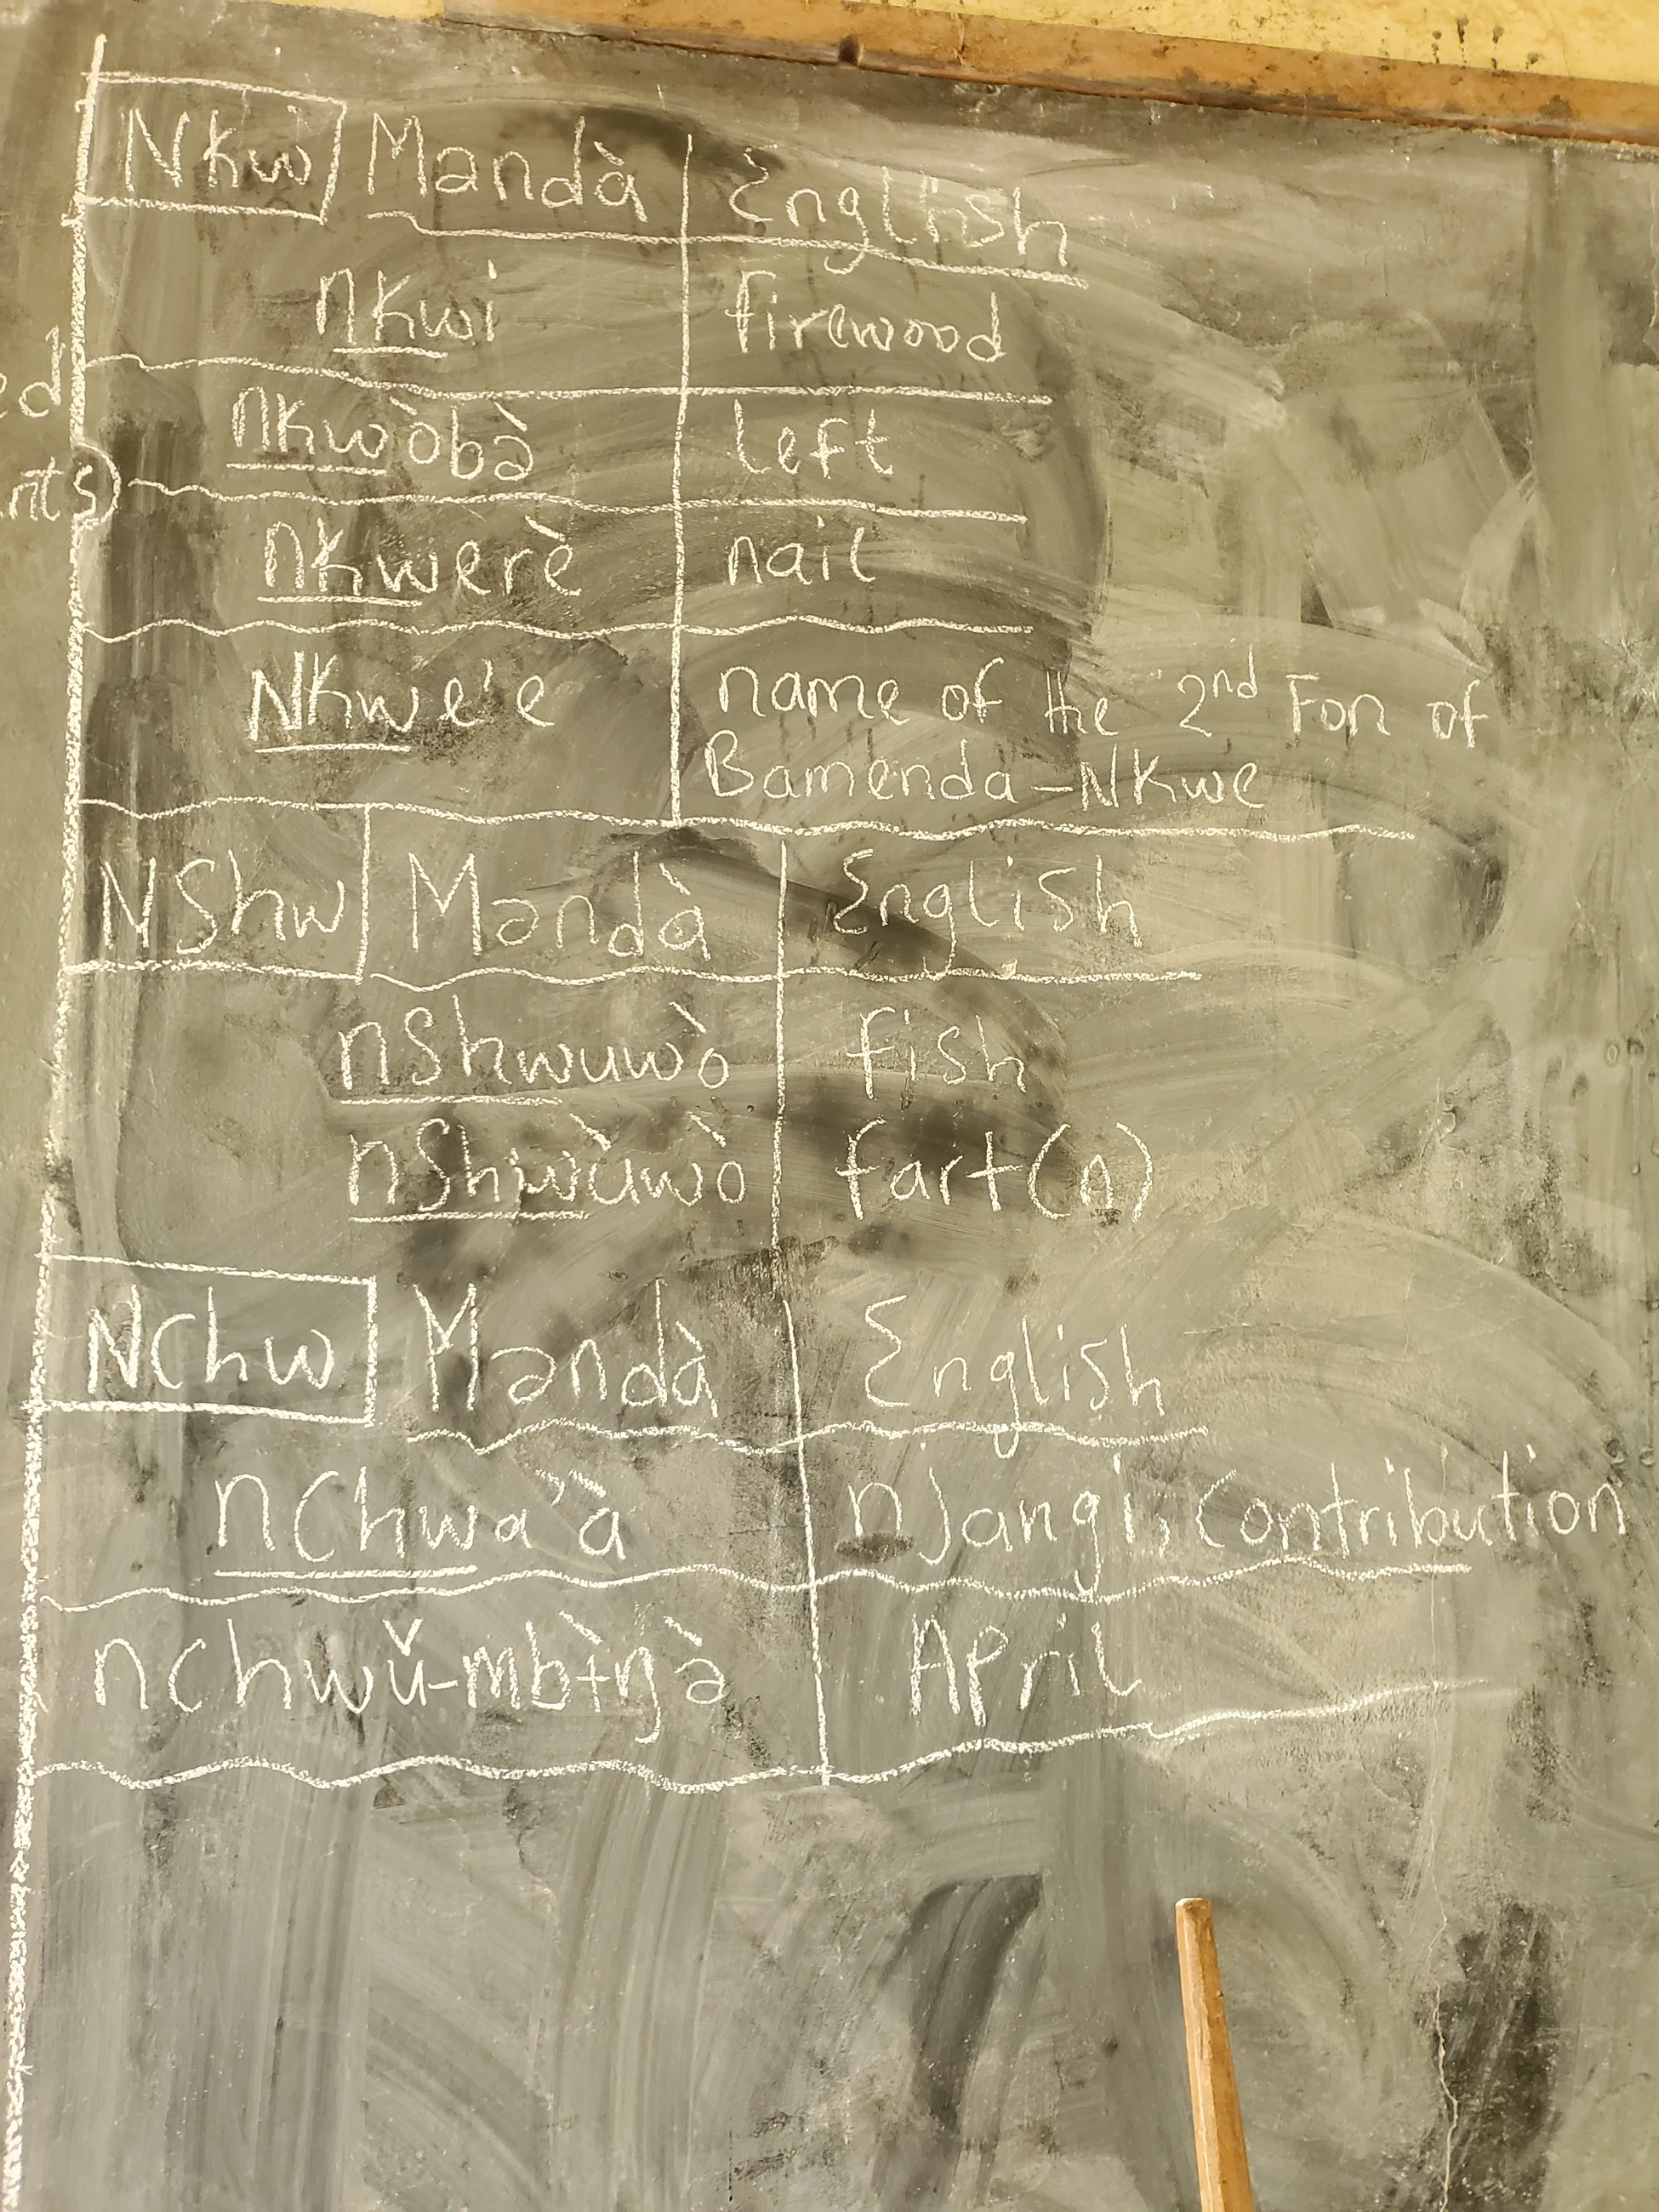 ed
nts)
Nkw Məndà English
nkwi firewood
nkwòbə̀ left
nkwerè nail
Nkwe'e name of the 2nd Fon of
Bamenda-Nkwe
NShw Məndà English
nshwuwò fish
nshwùwò fart(n)
NChw Məndà English
nchwa'à njangi, contribution
nchwǔ-mbɨ̀ŋə̀ April